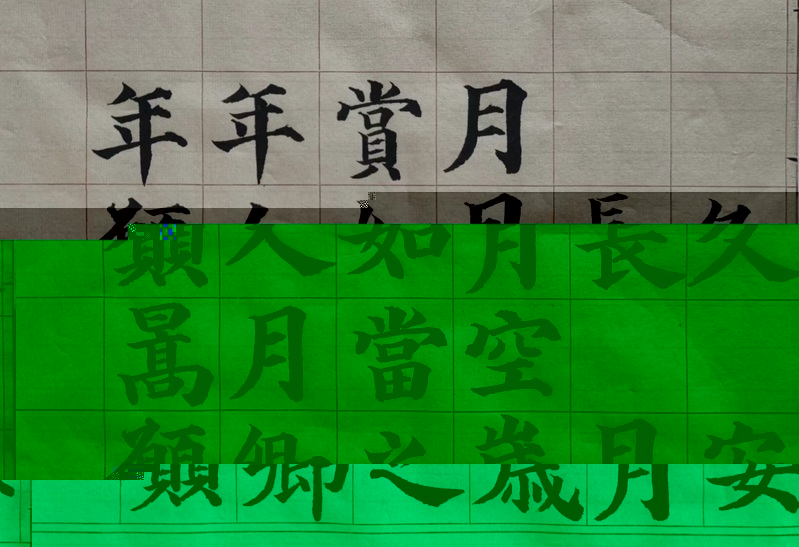 年年賞月
願人如月長久
暠月當空
願卿之歳月安